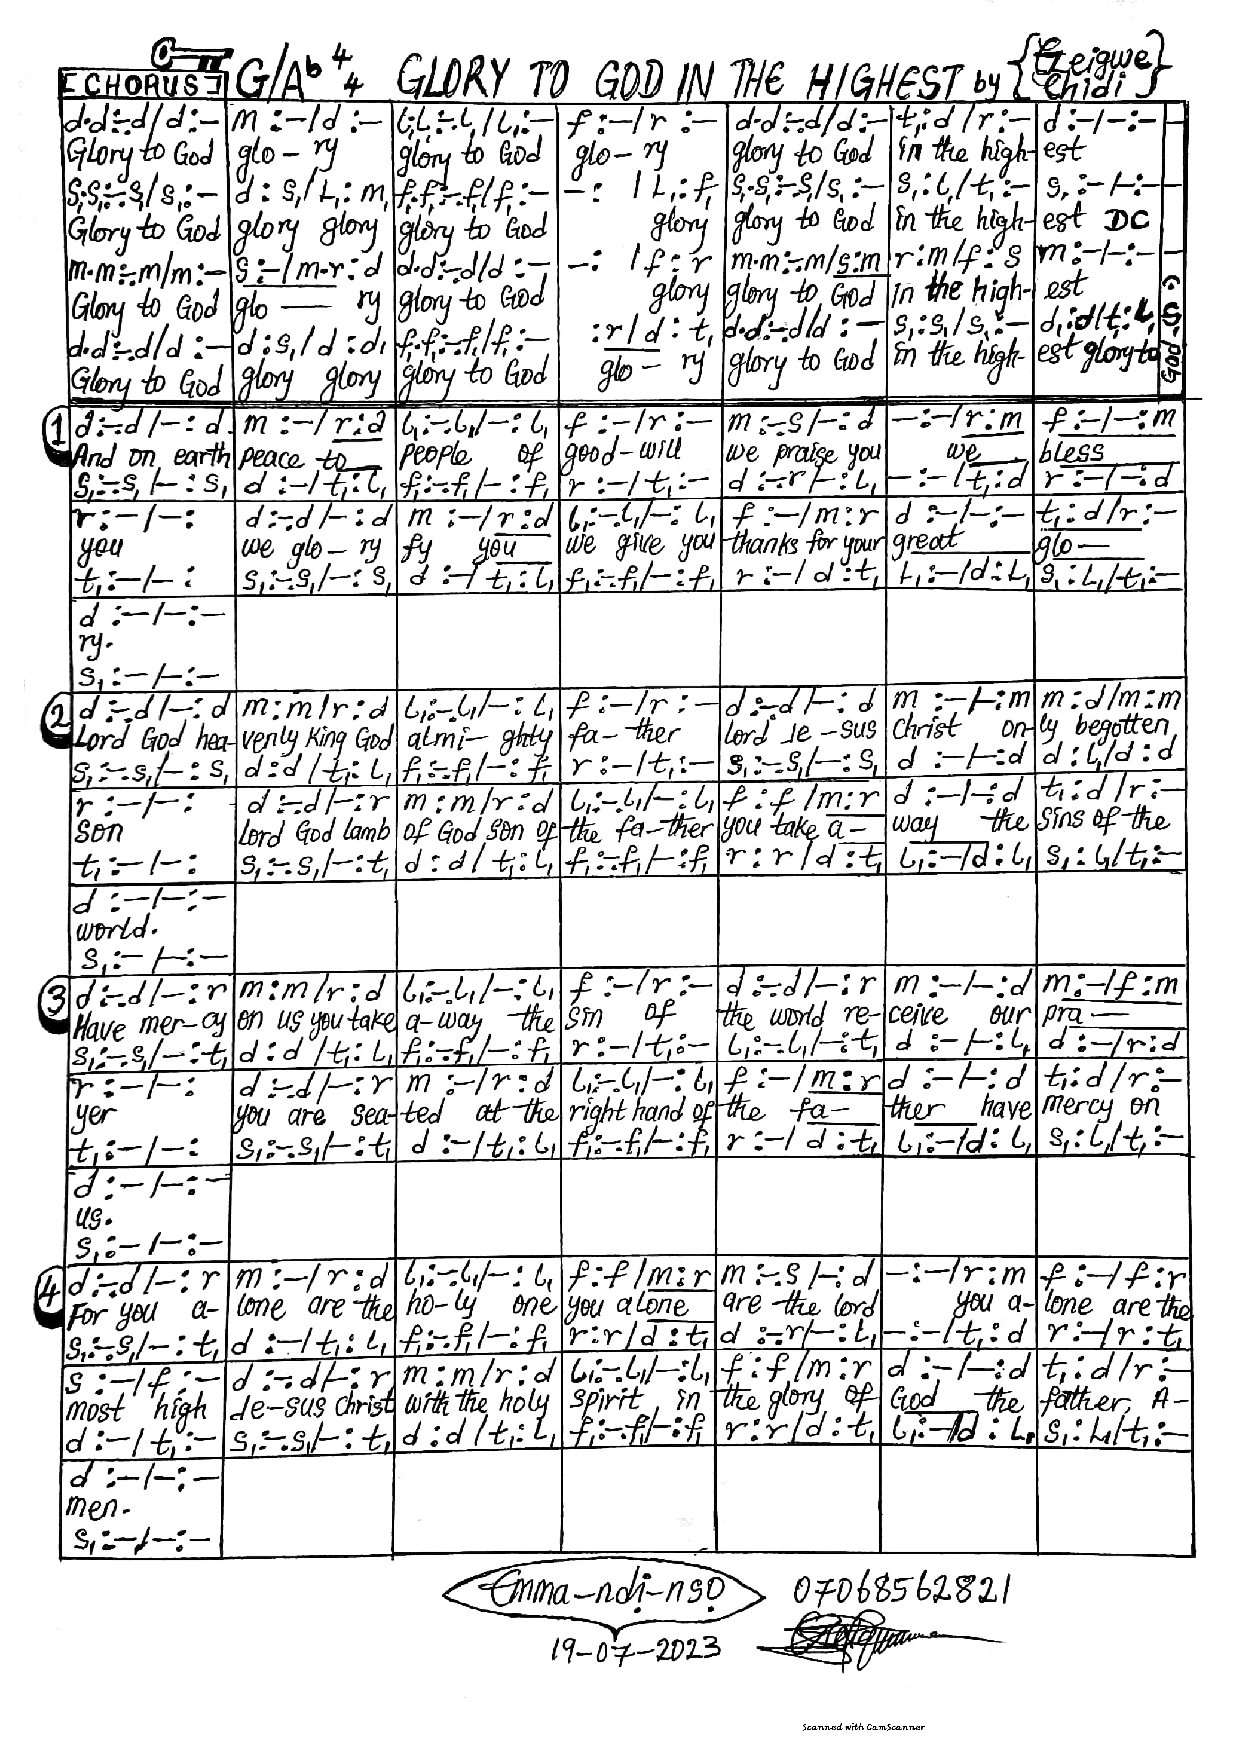 [CHORUS] G/Ab 4/4 GLORY TO GOD IN THE HIGHEST by {Ezeigwe Chidi}
d.d:-.d/d:- | m:-/d:- | l,.l,:-.l,/l,:- | f:-/r:- | d.d:-.d/d:- | t,:d/r:- | d:-/-:-
Glory to God | glo-ry | glory to God | glo-ry | glory to God | in the high- | est
s,.s,:-.s,/s,:- | d:s,/l,:m, | f,.f,:-.f,/f,:- | -: /l,:f, | s,.s,:-.s,/s,:- | s,:l,/t,:- | s,:-/-:-
Glory to God | glory glory | glory to God | glory | glory to God | in the high- | est DC
m.m:-.m/m:- | s:-/m.r:d | d.d:-.d/d:- | -: /f:r | m.m:-.m/s:m | r:m/f:s | m:-/-:-
Glory to God | glo — ry | glory to God | glory | glory to God | in the high- | est
d.d:-.d/d:- | d:s,/d:d, | f,.f,:-.f,/f,:- | :r/d:t, | d.d:-.d/d:- | s,:s,/s,:- | d,:d/t,:l, s,
Glory to God | glory glory | glory to God | glo-ry | glory to God | in the high- | est glory to God
1 d:-.d/-:d | m:-/r:d | l,:-.l,/-:l, | f:-/r:- | m:-.s/-:d | -:-/r:m | f:-/-:m
And on earth | peace to | people of | good-will | we praise you | we | bless
s,:-.s,/-:s, | d:-/t,:l, | f,:-.f,/-:f, | r:-/t,:- | d:-.r/-:l, | -:-/t,:d | r:-/-:d
r:-/-: | d:-.d/-:d | m:-/r:d | l,:-.l,/-:l, | f:-/m:r | d:-/-:- | t,:d/r:-
you | we glo-ry | fy you | we give you | thanks for your | great | glo—
t,:-/-: | s,:-.s,/-:s, | d:-/t,:l, | f,:-.f,/-:f, | r:-/d:t, | l,:-/d:l, | s,:l,/t,:-
d:-/-:-
ry.
s,:-/-:-
2 d:-.d/-:d | m:m/r:d | l,:-.l,/-:l, | f:-/r:- | d:-.d/-:d | m:-/-:m | m:d/m:m
Lord God hea- | venly King God | almi-ghty | fa-ther | lord Je-sus | christ on- | ly begotten
s,:-.s,/-:s, | d:d/t,:l, | f,:-.f,/-:f, | r:-/t,:- | s,:-.s,/-:s, | d:-/-:d | d:l,/d:d
r:-/-: | d:-.d/-:r | m:m/r:d | l,:-.l,/-:l, | f:f/m:r | d:-/-:d | t,:d/r:-
son | lord God lamb | of God son of | the fa-ther | you take a- | way the | sins of the
t,:-/-: | s,:-.s,/-:t, | d:d/t,:l, | f,:-.f,/-:f, | r:r/d:t, | l,:-/d:l, | s,:l,/t,:-
d:-/-:-
world.
s,:-/-:-
3 d:-.d/-:r | m:m/r:d | l,:-.l,/-:l, | f:-/r:- | d:-.d/-:r | m:-/-:d | m:-/f:m
Have mer-cy | on us you take | a-way the | sin of | the world re- | ceive our | pra—
s,:-.s,/-:t, | d:d/t,:l, | f,:-.f,/-:f, | r:-/t,:- | l,:-.l,/-:t, | d:-/-:l, | d:-/r:d
r:-/-: | d:-.d/-:r | m:-/r:d | l,:-.l,/-:l, | f:-/m:r | d:-/-:d | t,:d/r:-
yer | you are sea- | ted at the | right hand of | the fa- | ther have | mercy on
t,:-/-: | s,:-.s,/-:t, | d:-/t,:l, | f,:-.f,/-:f, | r:-/d:t, | l,:-/d:l, | s,:l,/t,:-
d:-/-:-
us.
s,:-/-:-
4 d:-.d/-:r | m:-/r:d | l,:-.l,/-:l, | f:f/m:r | m:-.s/-:d | -:-/r:m | f:-/f:r
For you a- | lone are the | ho-ly one | you alone | are the lord | you a- | lone are the
s,:-.s,/-:t, | d:-/t,:l, | f,:-.f,/-:f, | r:r/d:t, | d:-.r/-:l, | -:-/t,:d | r:-/r:t,
s:-/f:- | d:-.d/-:r | m:m/r:d | l,:-.l,/-:l, | f:f/m:r | d:-/-:d | t,:d/r:-
most high | Je-sus christ | with the holy | spirit in | the glory of | God the | father, A-
d:-/t,:- | s,:-.s,/-:t, | d:d/t,:l, | f,:-.f,/-:f, | r:r/d:t, | l,:-/d:l, | s,:l,/t,:-
d:-/-:-
men.
s,:-/-:-
Emma-ndi-nsọ 07068562821
19-07-2023
Scanned with CamScanner